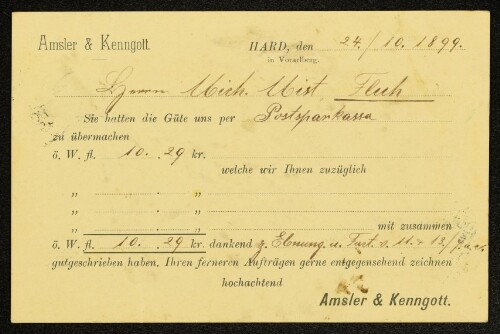 Amsler & Kenngott.
HARD, den 24./10. 1899.
in Vorarlberg.
Herrn Mich. Mist Fluh
Sie hatten die Güte uns per Postsparkassa
zu übermachen
ö. W. fl. 10. „ 29 kr.
welche wir Ihnen zuzüglich
„ „
„ „
„ „ mit zusammen
ö. W. fl. 10. „ 29 kr. dankend z. u. Fact. v. 11. + 13./
gutgeschrieben haben. Ihren ferneren Aufträgen gerne entgegensehend zeichnen
hochachtend
Amsler & Kenngott.